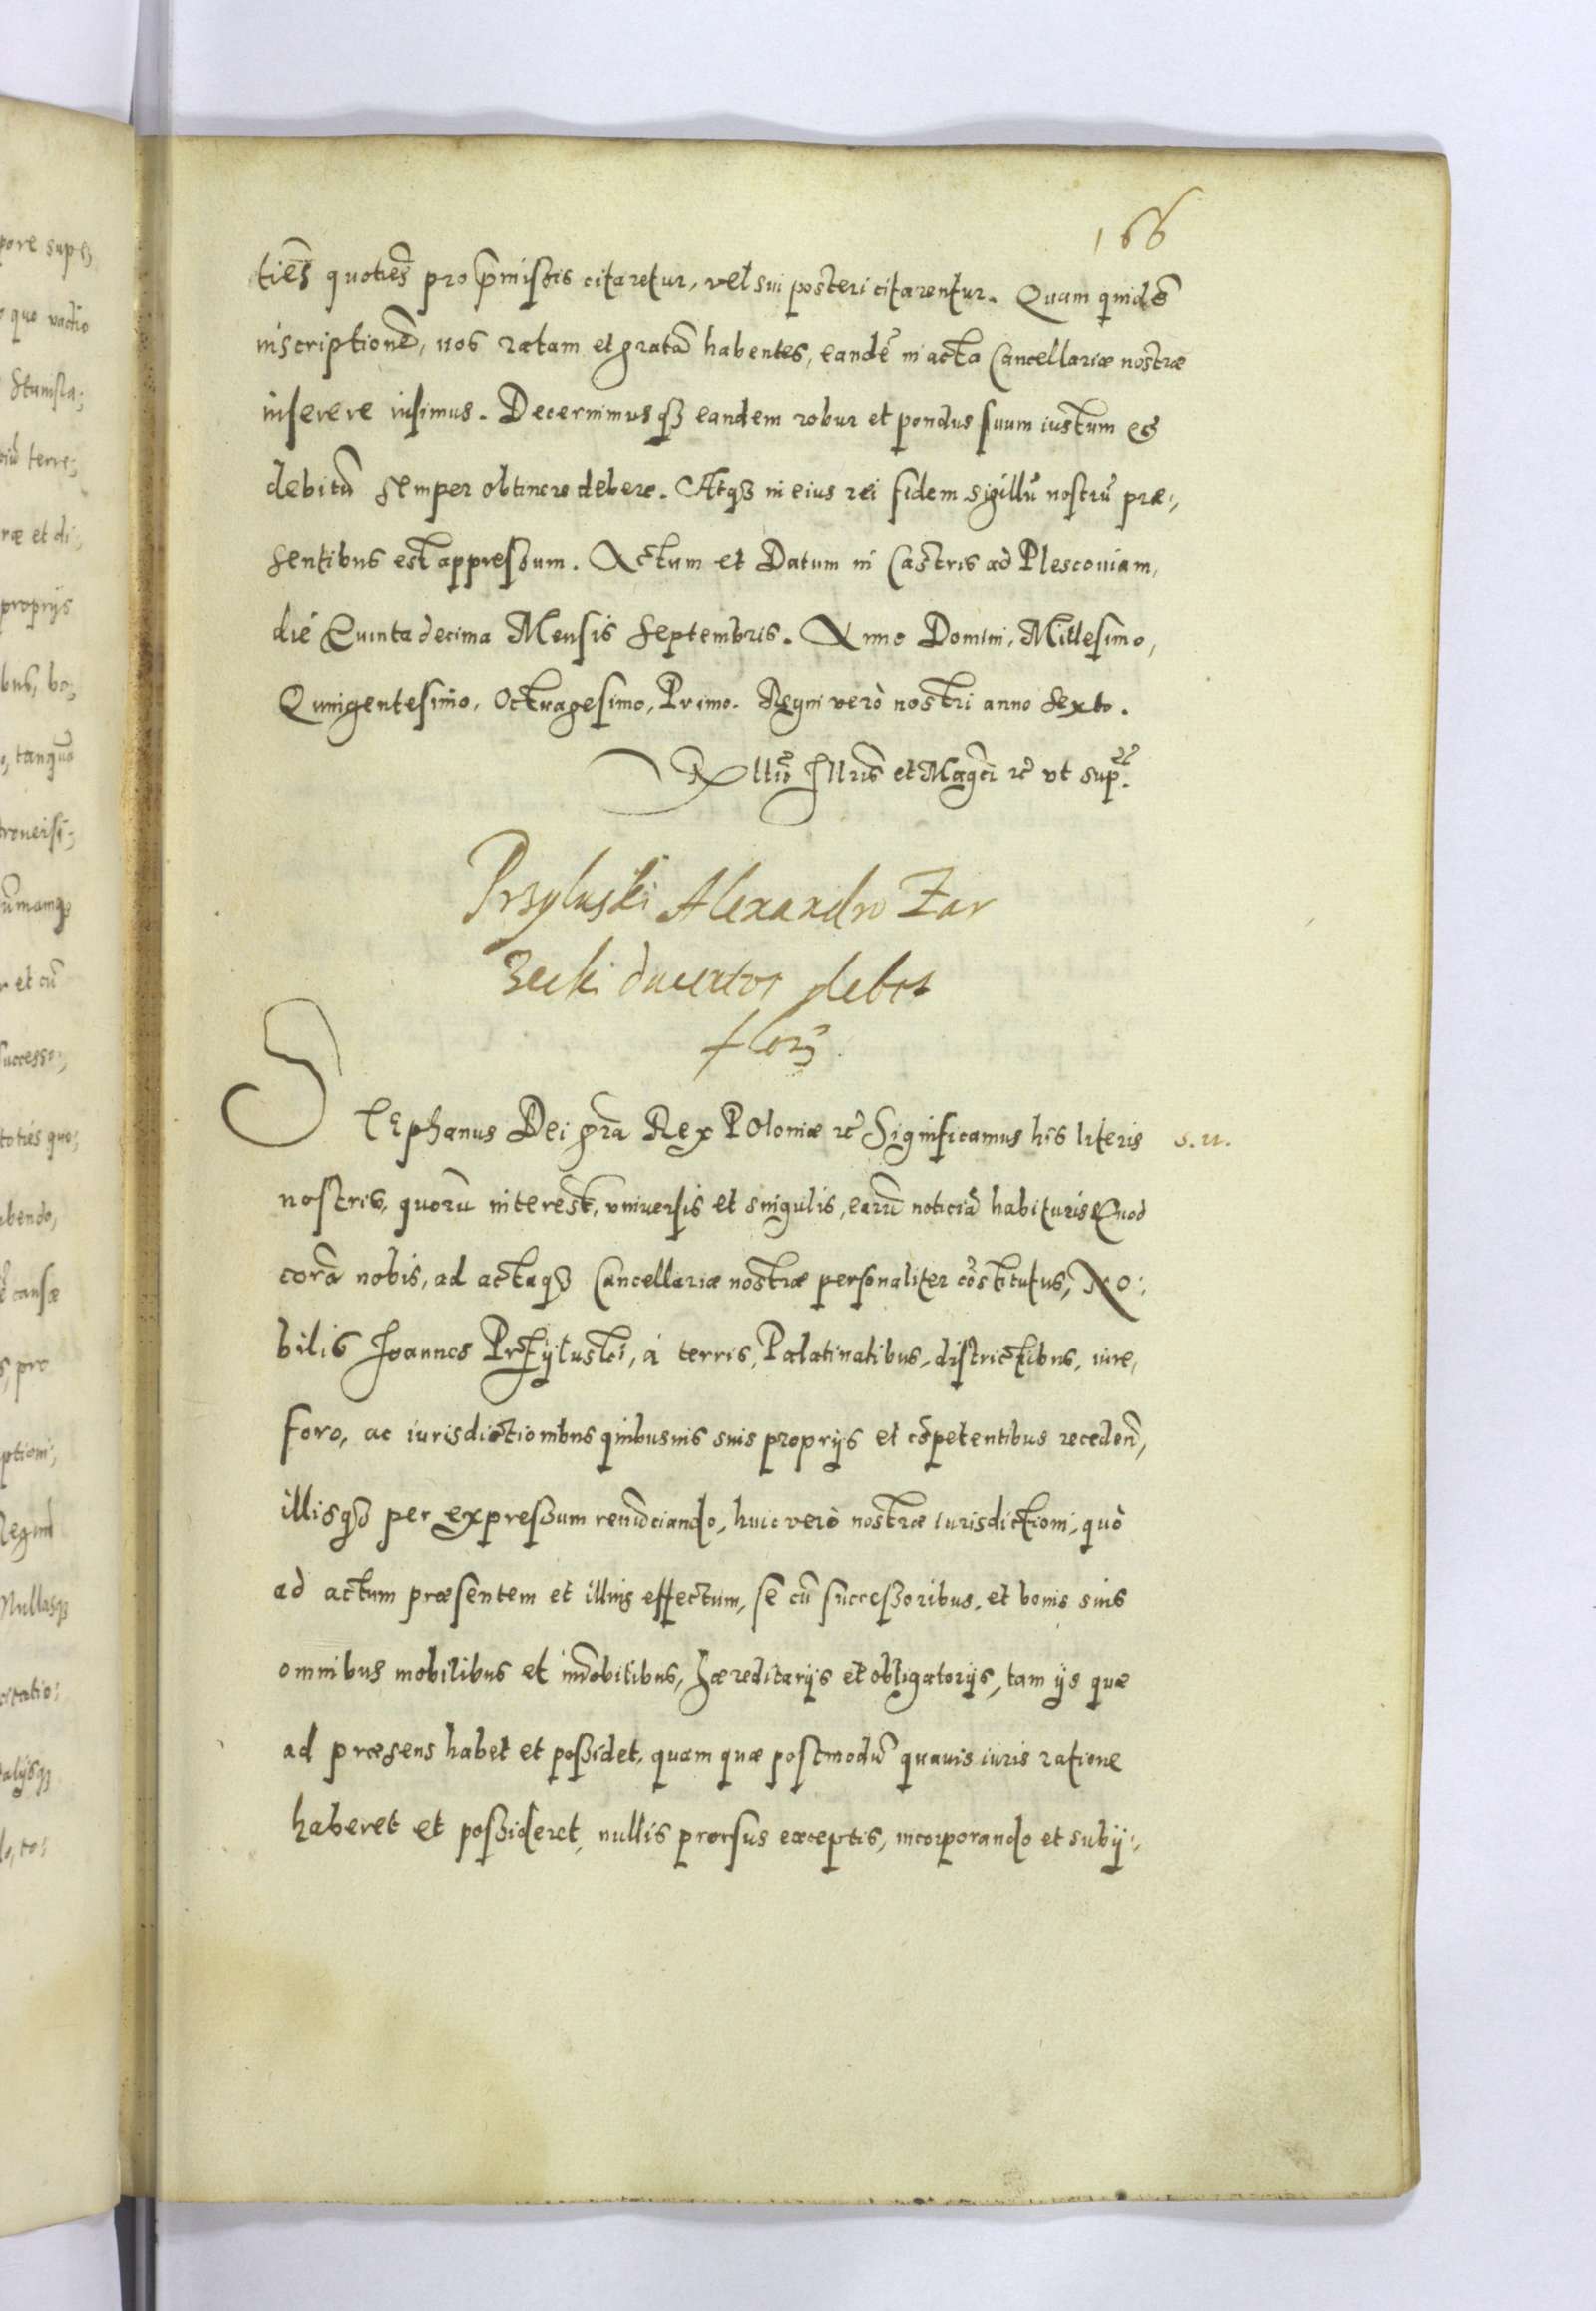 166
tiēs quotiēs pro p̄missis citaretur, vel sui posteri citarentur. Quam quidē
inscriptionē, nos ratam et gratā habentes, eandē in acta Cancellariæ nostræ
inserere iusimus. Decernimusq₃ eandem robur et pondus suum iustum et
debitū semper obtinere debere. Atq₃ in eius rei fidem sigillū nostrū præ:,
sentibus est appressum. Actum et Datum in Castris ad Plescouiam,
die Quinta decima Mensis Septembris. Anno Domini, Millesimo,
Quingentesimo, Octuagesimo, Primo. Regni verò nostri anno Sexto.
Illris et Magci rc̄ vt sup.
Przyluski Alexandro Zar
zecki ducentos debet
flor₃
STEphanus Dei gr̄a Rex POloniæ rc̄ Significamus his literis
nostris, quorū interest, vniuersis et singulis, earū noticiā habituris Quod
corā nobis, ad actaq₃ Cancellariæ nostræ personaliter cōstitutus, No:
bilis Joannes Przÿluski, à terris, Palatinatibus, districtibus, iure,
foro, ac iurisdictionibus quibusuis suis proprijs et cōpetentibus recedeñ,
illisq₃ per expressum renūciando, huic verò nostræ iurisdictioni, quò
ad actum præsentem et illius effectum, se cū successoribus, et bonis suis
omnibus mobilibus et im̄obilibus, hæreditarijs et obligatorijs, tam ijs quæ
ad præsens habet et possidet, quam quæ postmodū quauis iuris ratione
haberet et possideret, nullis prorsus exceptis, incorporando et subij:,